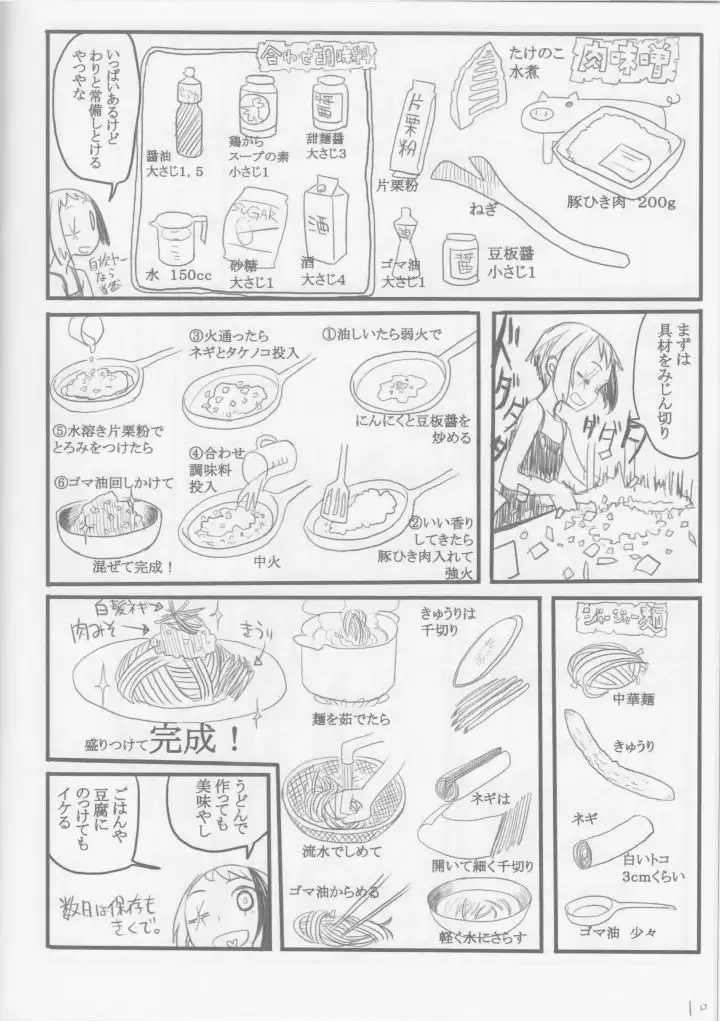 肉味噌
たけのこ
水煮
豚ひき肉 200g
片栗粉
片栗粉
ねぎ
油
ゴマ油
大さじ1
醤
豆板醤
小さじ1
合わせ調味料
醤油
大さじ1,5
鶏がら
スープの素
小さじ1
醤
甜麺醤
大さじ3
水 150cc
SUGAR
砂糖
大さじ1
酒
酒
大さじ4
いっぱいあるけど
わりと常備しとける
やつやな
自炊ヤー
なら
当然
まずは
具材をみじん切り
ズダダダダダダ
①油しいたら弱火で
にんにくと豆板醤を
炒める
②いい香り
してきたら
豚ひき肉入れて
強火
③火通ったら
ネギとタケノコ投入
④合わせ
調味料
投入
中火
⑤水溶き片栗粉で
とろみをつけたら
⑥ゴマ油回しかけて
混ぜて完成！
ジャージャー麺
中華麺
きゅうり
ネギ
白いトコ
3cmくらい
ゴマ油 少々
きゅうりは
千切り
ネギは
開いて細く千切り
軽く水にさらす
麺を茹でたら
流水でしめて
ゴマ油からめる
白髪ネギ
肉みそ
きうり
盛りつけて完成！
うどんで
作っても
美味やし
ごはんや
豆腐に
のっけても
イケる
数日は保存も
きくで。
10